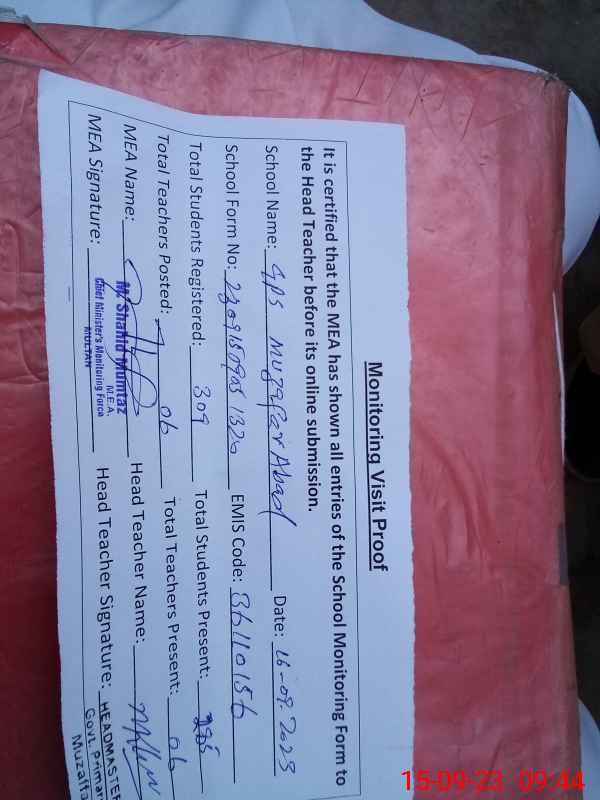 Monitoring Visit Proof
It is certified that the MEA has shown all entries of the School Monitoring Form to
the Head Teacher before its online submission.
School Name: GPS Muzafar Abad Date: 15-09-2023
School Form No: EMIS Code: 36110156
Total Students Registered: 309 Total Students Present:
Total Teachers Posted: 06 Total Teachers Present: 06
MEA Name: M. Shahid Mumtaz Head Teacher Name:
M.E.A.
MEA Signature: Chief Minister's Monitoring Force Head Teacher Signature: HEADMASTER
MULTAN
Govt. Primar
Muzaffa
15-09-23 09:44